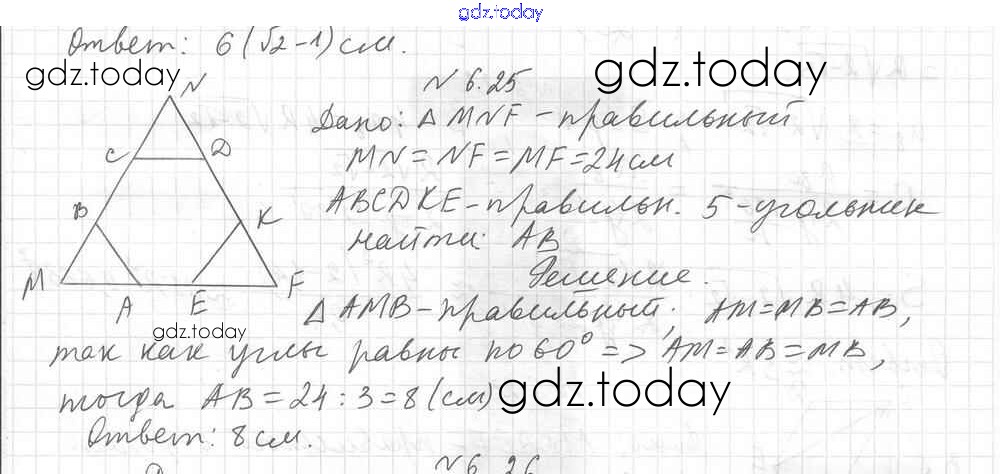 gdz.today
Ответ: 6(√2-1)см.
gdz.today
gdz.today
N 6.25
Дано: △ MNF - правильный
MN = NF = MF = 24 см
ABCDKE - правильн. 5-угольник
найти: AB
Решение.
△ AMB - правильный; AM=MB=AB,
так как углы равны по 60° => AM=AB=MB,
тогда AB = 24 : 3 = 8 (см)
Ответ: 8 см.
N
C D
B K
M A E F
gdz.today
gdz.today
N 6.26